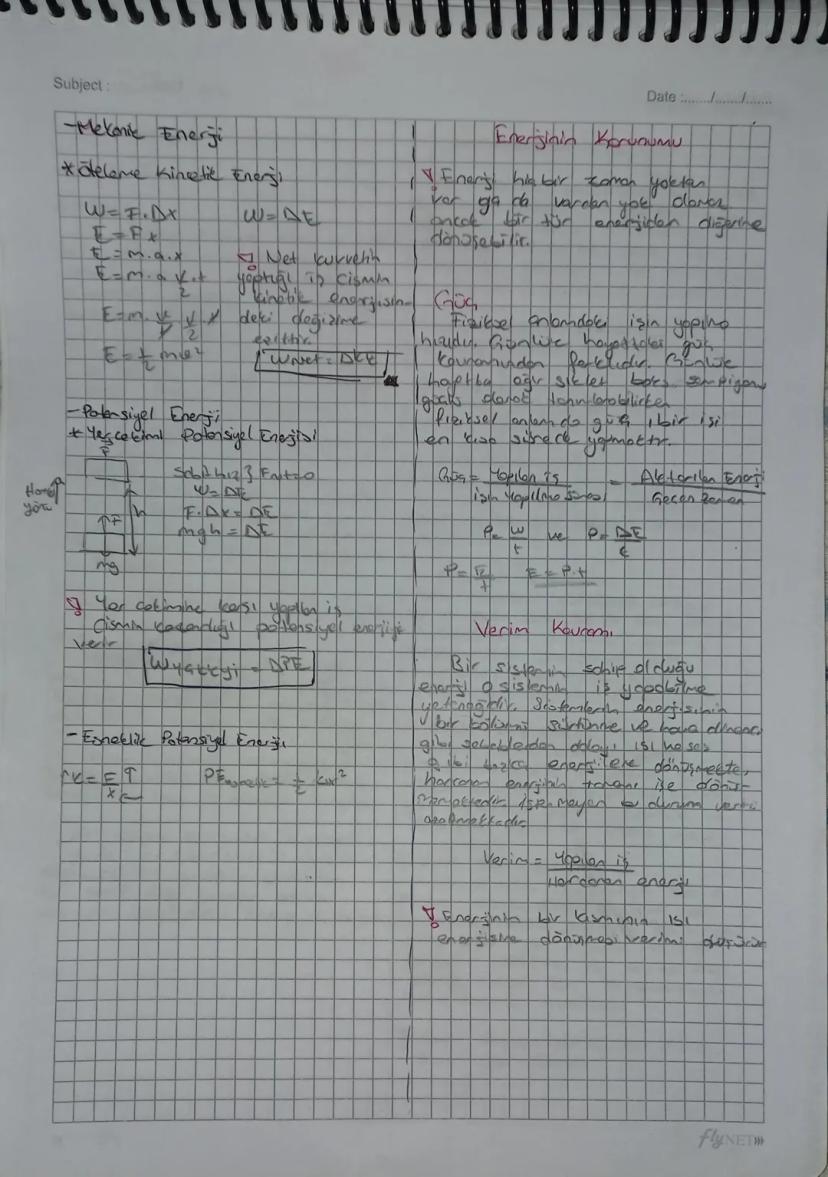 Subject :
Date :....../....../......
- Mekanik Enerji
* Öteleme Kinetik Enerji
W = F.Δx W = ΔE
E = F x
E = m.a.x
E = m.a v/2 .t
E = m. v/t v/2 t
E = 1/2 mv²
Net kuvvetin
yaptığı iş cismin
kinetik enerjisin-
deki değişime
eşittir.
Wnet = ΔKE
- Potansiyel Enerji
* Yerçekimi Potansiyel Enerjisi
F
Sabit hız } Fnet=0
W = ΔE
F.Δx = ΔE
mgh = ΔE
yön
h
F
mg
Yer çekimine karşı yapılan iş
cismin kazandığı potansiyel enerjiyi
verir
= ΔPE
- Esneklik Potansiyel Enerji
k = F/x
PEesneklik = 1/2 kx²
Enerjinin Korunumu
Enerji hiç bir zaman yoktan
var ya da vardan yok olamaz
ancak bir tür enerjiden diğerine
dönüşebilir.
Güç
Fiziksel anlamdaki işin yapılma
hızıdır. Günlük hayattaki güç
kavramından farklıdır. Günlük
hayatta ağır siklet boks şampiyonu
güçlü olarak tanımlanabilirken
fiziksel anlamda güç, bir işi
en kısa sürede yapmaktır.
Güç = Yapılan iş / işin yapılma süresi = Aktarılan Enerji / Geçen zaman
P = W/t ve P = ΔE/t
P = E/t E = P.t
Verim Kavramı
Bir sistemin sahip olduğu
enerji o sistemin iş yapabilme
yeteneğidir. Sistemlerin enerjisinin
bir bölümü sürtünme ve hava direnci
gibi sebeblerden dolayı ısı ve ses
gibi enerjilere dönüşmekte,
harcanan enerjinin tamamı işe dönüş-
memektedir. durum verimi
azaltmaktadır
Verim = Yapılan iş / Harcanan enerji
Enerjinin bir kısmının ısı
enerjisine dönüşmesi verimi düşürür
flyNET